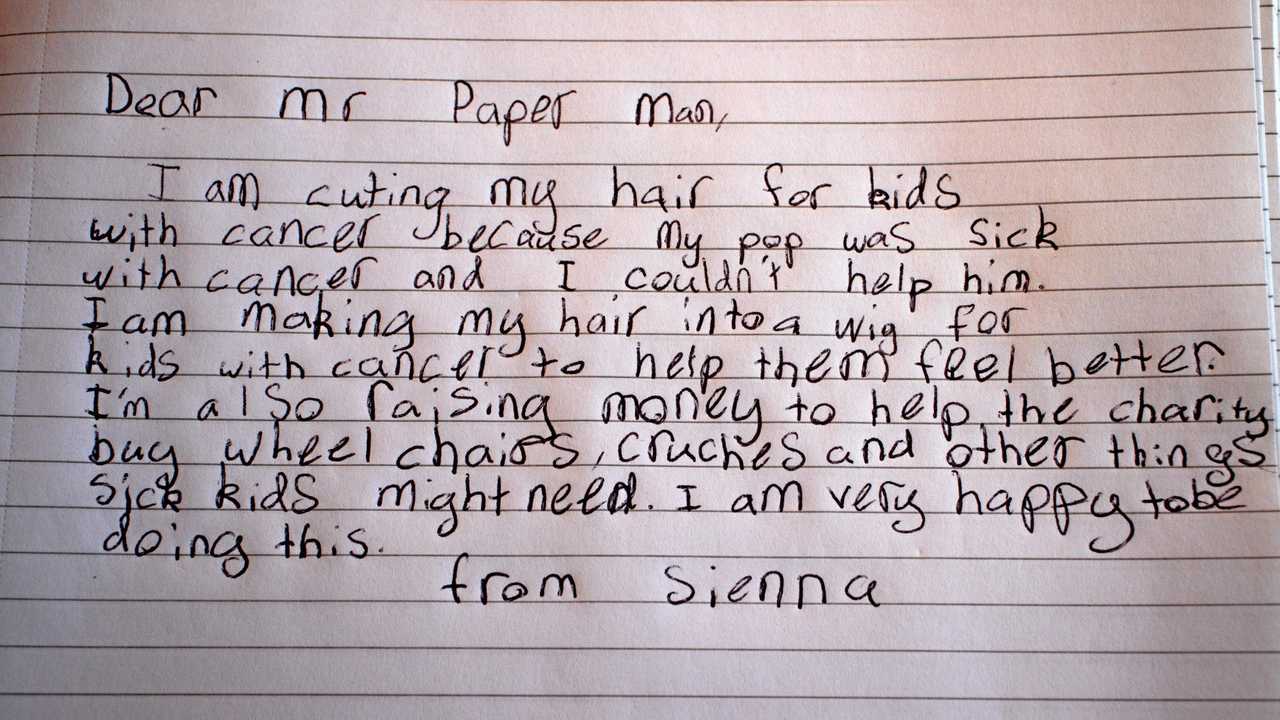 Dear mr Paper Man,
I am cuting my hair for kids
with cancer because my pop was sick
with cancer and I couldn't help him.
I am making my hair into a wig for
kids with cancer to help them feel better.
I'm also raising money to help the charity
buy wheel chairs, cruches and other things
sick kids might need. I am very happy to be
doing this.
from Sienna